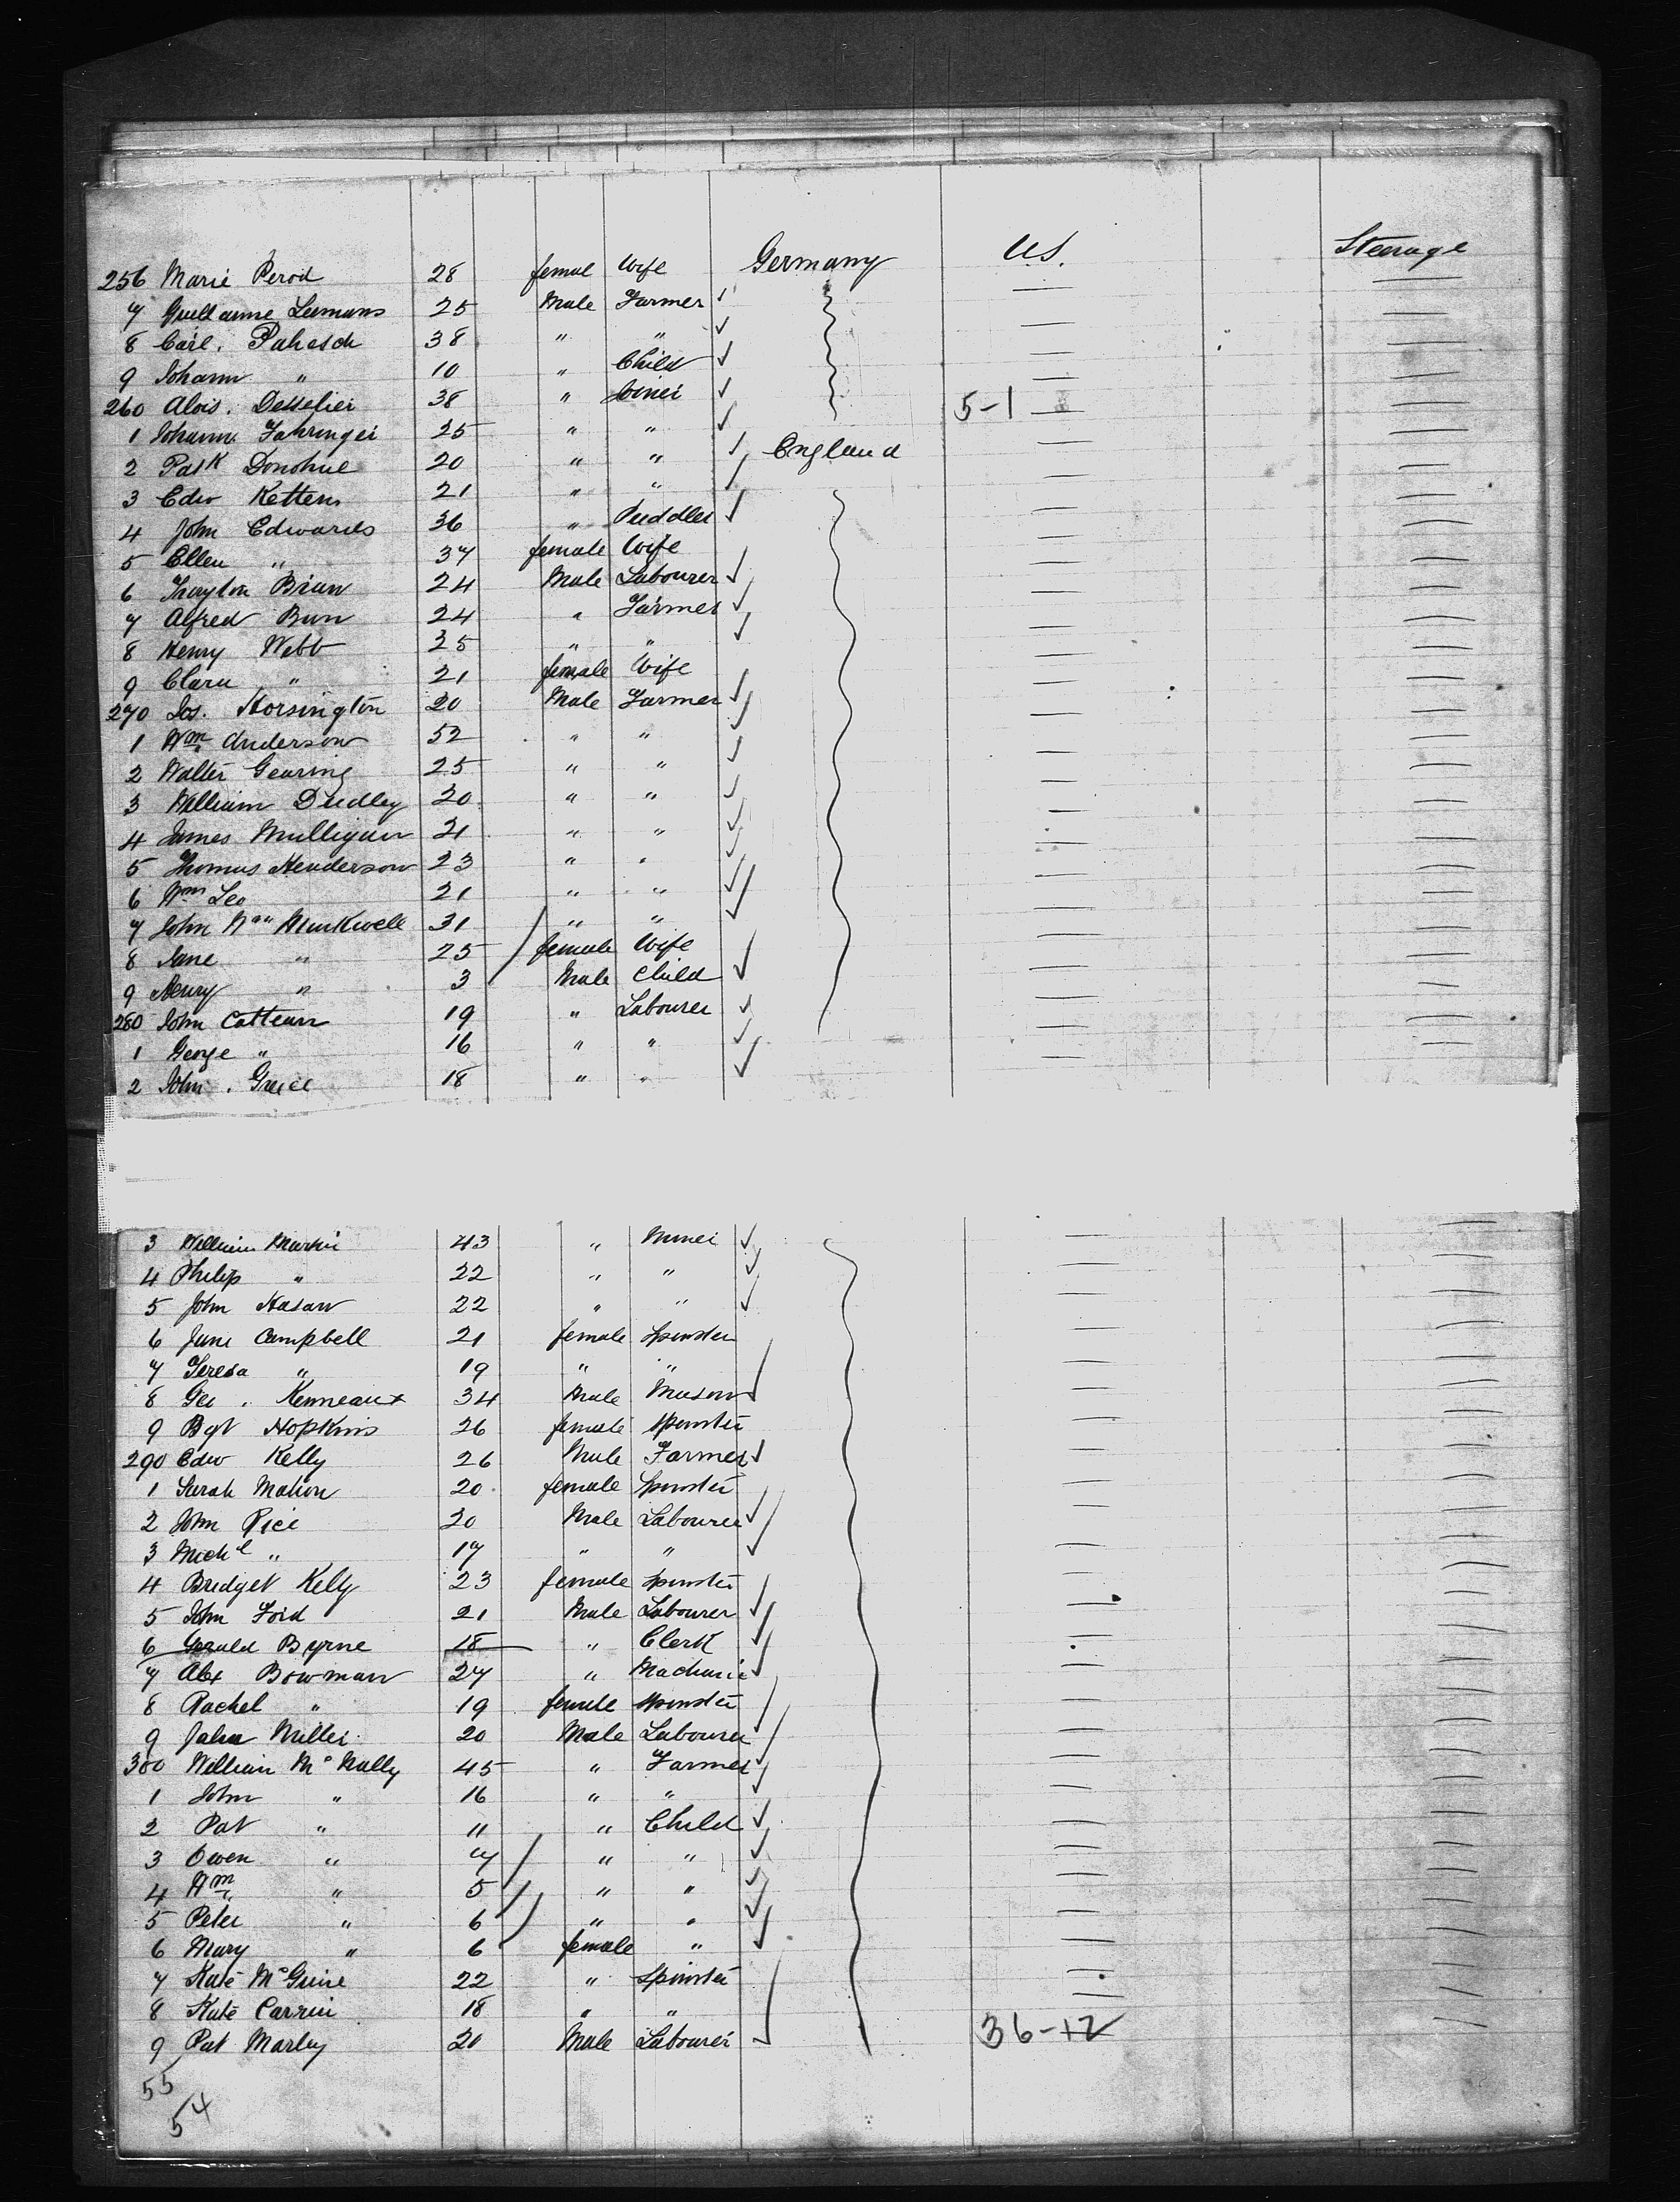 256 Marie Perod 28 femal Wife Germany U.S. Steerage
7 Guillaume Leemans 25 Male Farmer
8 Carl. Pahasch 38 " "
9 Johann " 10 " Child
260 Alois. 38 " 5-1
1 Johann Fahringer 25 " "
2 Patk Donohue 20 " " England
3 Edw Kettens 21 " "
4 John Edwards 36 " Puddler
5 Ellen " 37 female Wife
6 Brian 24 Male Labourer
7 Alfred Bun 24 " Farmer
8 Henry Webb 25 " "
9 Clara " 21 female Wife
270 Jos. Horsington 20 Male Farmer
1 Wm Anderson 52 " "
2 Walter Gearing 25 " "
3 William Dudley 20 " "
4 James Mulligan 21 " "
5 Thomas Henderson 23 " "
6 Wm Leo 21 " "
7 John 31 " "
8 Jane " 25 female Wife
9 Henry " 3 Male Child
280 John Catteau 19 " Labourer
1 George " 16 " "
2 John. 18 " "
3 William Martin 43 " Miner
4 Philip " 22 " "
5 John 22 " "
6 Jane Campbell 21 female Spinster
7 Teresa " 19 " "
8 Geo. 34 Male Mason
9 Bgt Hopkins 26 female Spinster
290 Edw Kelly 26 Male Farmer
1 Sarah Mahon 20 female Spinster
2 John Rice 20 Male Labourer
3 Michl " 17 " "
4 Bridget Kelly 23 female Spinster
5 John Ford 21 Male Labourer
6 Gerald Byrne 18 " Clerk
7 Alex Bowman 27 " Mechanic
8 Rachel " 19 female Spinster
9 John Miller 20 Male Labourer
300 William McNally 45 " Farmer
1 John " 16 " "
2 Pat " 11 " Child
3 Owen " 7 " "
4 Wm " 5 " "
5 Peter " 6 " "
6 Mary " 6 female "
7 Kate McGuire 22 " Spinster
8 Kate 18 " "
9 Pat Marley 20 Male Labourer 36-12
55
54